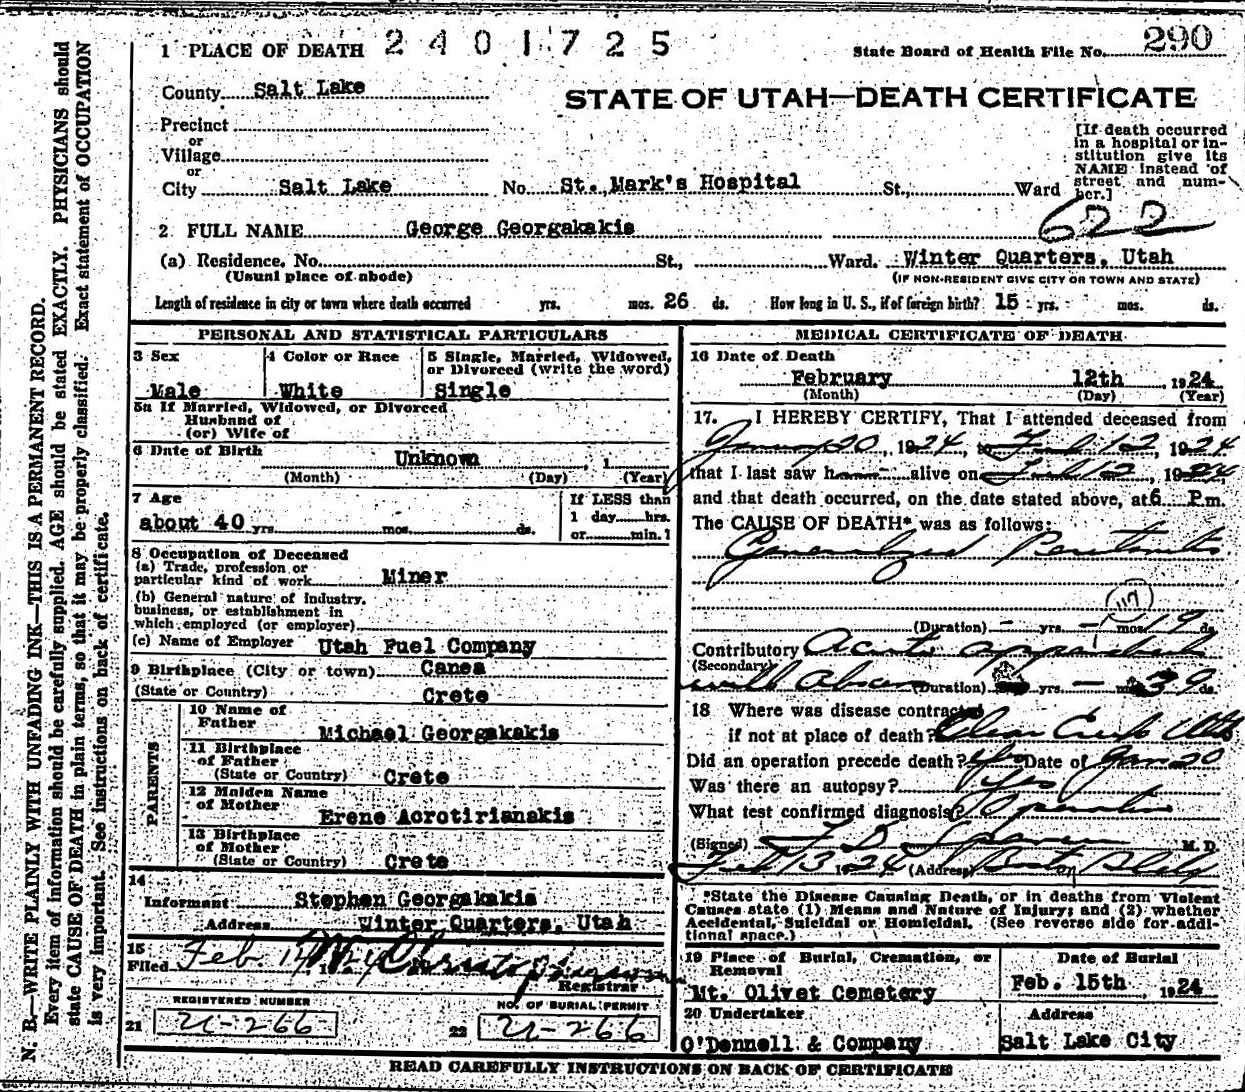 1 PLACE OF DEATH 2401725
State Board of Health File No. 290
County Salt Lake
STATE OF UTAH—DEATH CERTIFICATE
Precinct
or
Village
or
City Salt Lake No. St. Mark's Hospital St., Ward
[If death occurred
in a hospital or in-
stitution give its
NAME instead of
street and num-
ber.]
622
2 FULL NAME George Georgakakis
(a) Residence, No. St., Ward. Winter Quarters, Utah
(Usual place of abode) (IF NON-RESIDENT GIVE CITY OR TOWN AND STATE)
Length of residence in city or town where death occurred yrs. mos. 26 ds. How long in U. S., if of foreign birth? 15 yrs. mos. ds.
PERSONAL AND STATISTICAL PARTICULARS
3 Sex
Male
4 Color or Race
White
5 Single, Married, Widowed,
or Divorced (write the word)
Single
5a If Married, Widowed, or Divorced
Husband of
(or) Wife of
6 Date of Birth Unknown , 1
(Month) (Day) (Year)
7 Age
about 40 yrs. mos. ds.
If LESS than
1 day hrs.
or min. ?
8 Occupation of Deceased
(a) Trade, profession or
particular kind of work Miner
(b) General nature of industry,
business, or establishment in
which employed (or employer)
(c) Name of Employer Utah Fuel Company
9 Birthplace (City or town) Canea
(State or Country) Crete
PARENTS
10 Name of
Father
Michael Georgakakis
11 Birthplace
of Father
(State or Country) Crete
12 Maiden Name
of Mother
Erene Acrotirianakis
13 Birthplace
of Mother
(State or Country) Crete
14
Informant Stephen Georgakakis
Address Winter Quarters, Utah
15
Filed Feb. 14
Registrar
REGISTERED NUMBER
21 21-266
NO. OF BURIAL PERMIT
22 21-266
MEDICAL CERTIFICATE OF DEATH
16 Date of Death
February 12th , 1924
(Month) (Day) (Year)
17. I HEREBY CERTIFY, That I attended deceased from
January 20, 1924, to Feb 12, 1924
that I last saw h alive on Feb 12, 1924,
and that death occurred, on the date stated above, at 6 P.m.
The CAUSE OF DEATH* was as follows:
Generalized Peritonitis
117
(Duration) - yrs. - mos. 19 ds.
Contributory Acute appendicitis
(Secondary)
with Abscess (Duration) yrs. - mos. 39 ds.
18 Where was disease contracted
if not at place of death? Clear Creek Utah
Did an operation precede death? Yes Date of Jan 20
Was there an autopsy? Yes
What test confirmed diagnosis? Operation
(Signed) M. D.
Feb 13 1924 (Address) Bldg
*State the Disease Causing Death, or in deaths from Violent
Causes state (1) Means and Nature of Injury; and (2) whether
Accidental, Suicidal or Homicidal. (See reverse side for addi-
tional space.)
19 Place of Burial, Cremation, or
Removal
Mt. Olivet Cemetery
Date of Burial
Feb. 15th , 1924
20 Undertaker
O'Donnell & Company
Address
Salt Lake City
READ CAREFULLY INSTRUCTIONS ON BACK OF CERTIFICATE
N. B.—WRITE PLAINLY WITH UNFADING INK—THIS IS A PERMANENT RECORD.
Every item of information should be carefully supplied. AGE should be stated EXACTLY. PHYSICIANS should
state CAUSE OF DEATH in plain terms, so that it may be properly classified. Exact statement of OCCUPATION
is very important. See instructions on back of certificate.